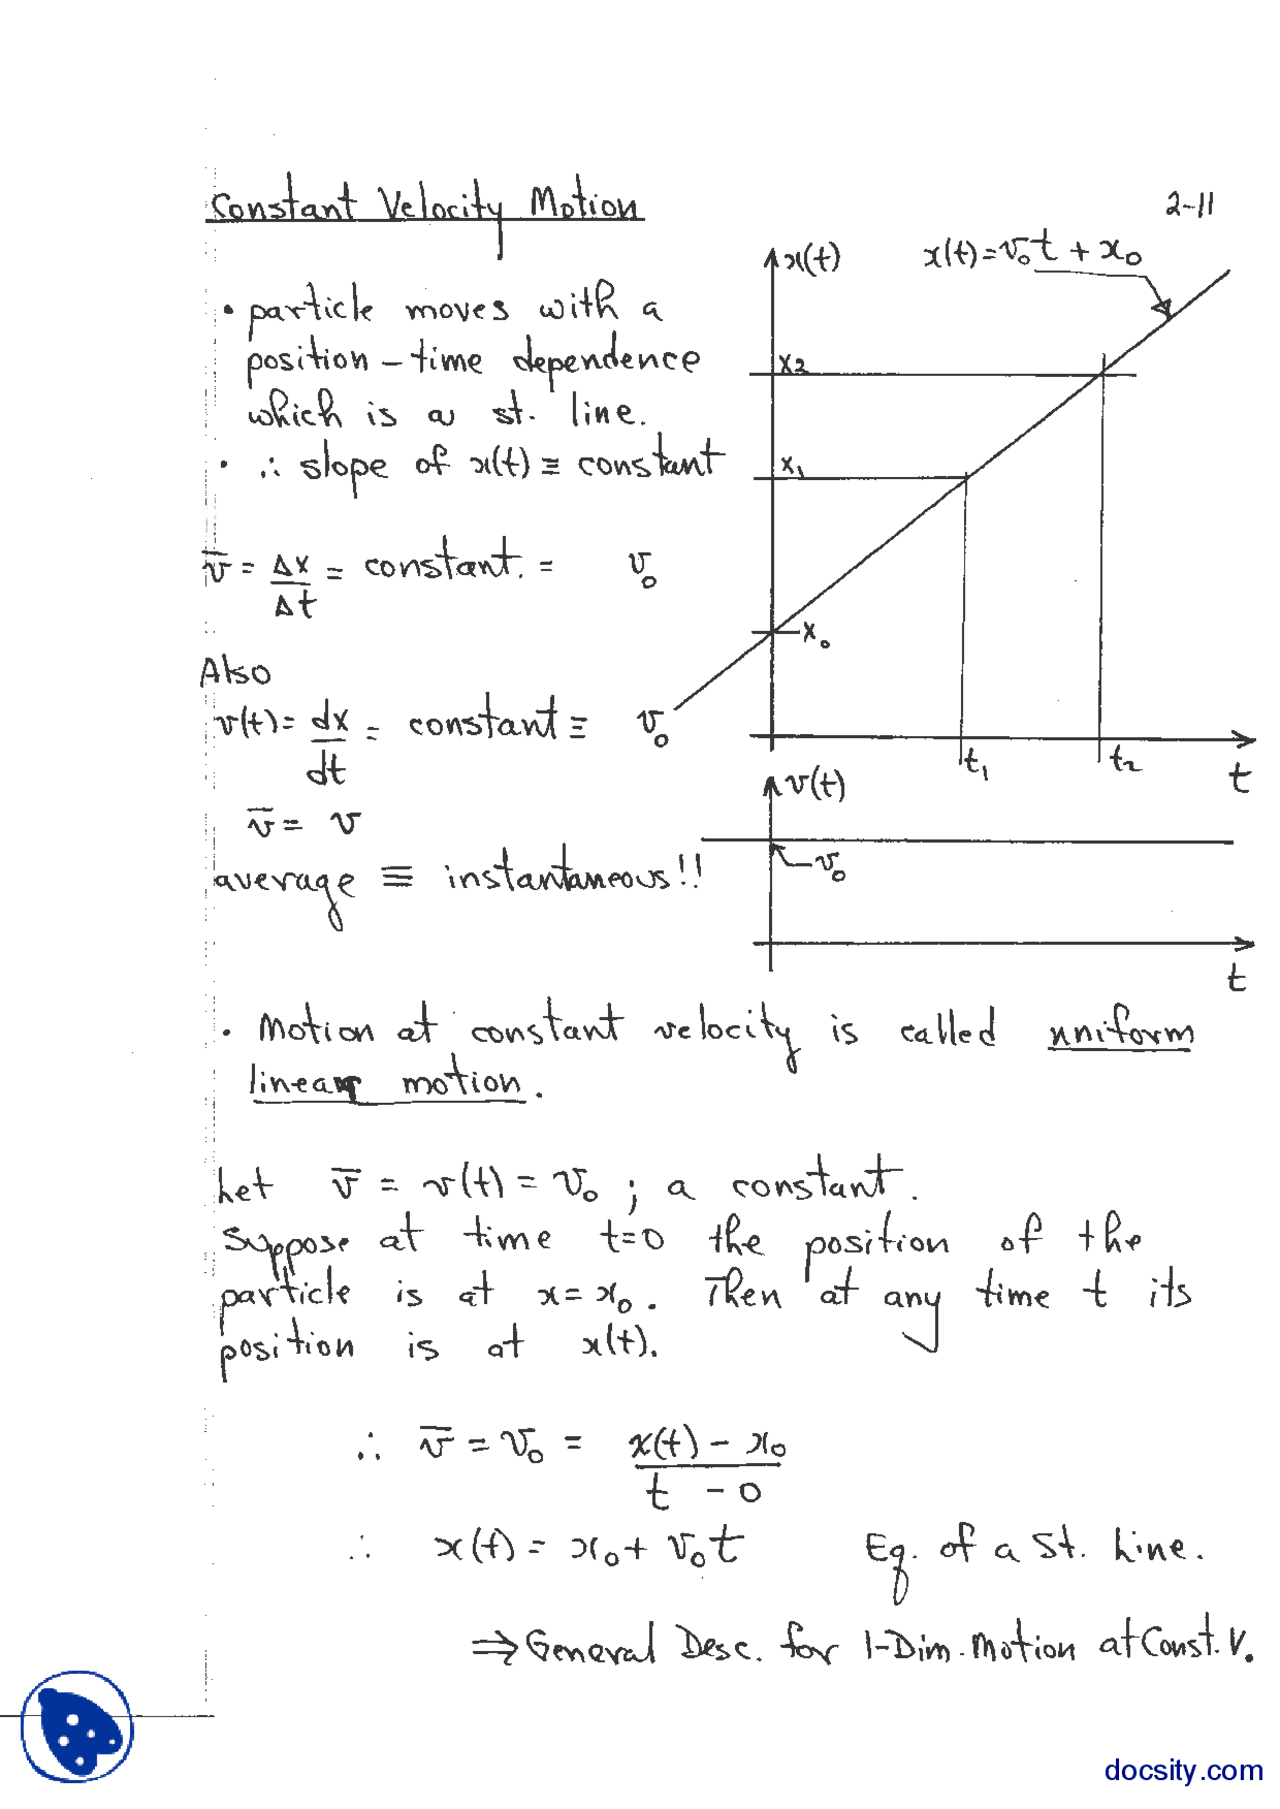 Constant Velocity Motion
2-11
x(t)
x(t) = v₀t + x₀
• particle moves with a
position - time dependence
which is a st. line.
• ∴ slope of x(t) ≡ constant
x₂
x₁
x₀
t₁
t₂
t
v̄ = Δx/Δt = constant. = v₀
Also
v(t) = dx/dt = constant ≡ v₀
v̄ = v
average ≡ instantaneous!!
v(t)
v₀
t
• Motion at constant velocity is called uniform
linear motion.
Let v̄ = v(t) = v₀ ; a constant.
Suppose at time t=0 the position of the
particle is at x = x₀. Then at any time t its
position is at x(t).
∴ v̄ = v₀ = (x(t) - x₀)/(t - 0)
∴ x(t) = x₀ + v₀t Eq. of a St. Line.
⇒ General Desc. for 1-Dim. Motion at Const. V.
docsity.com